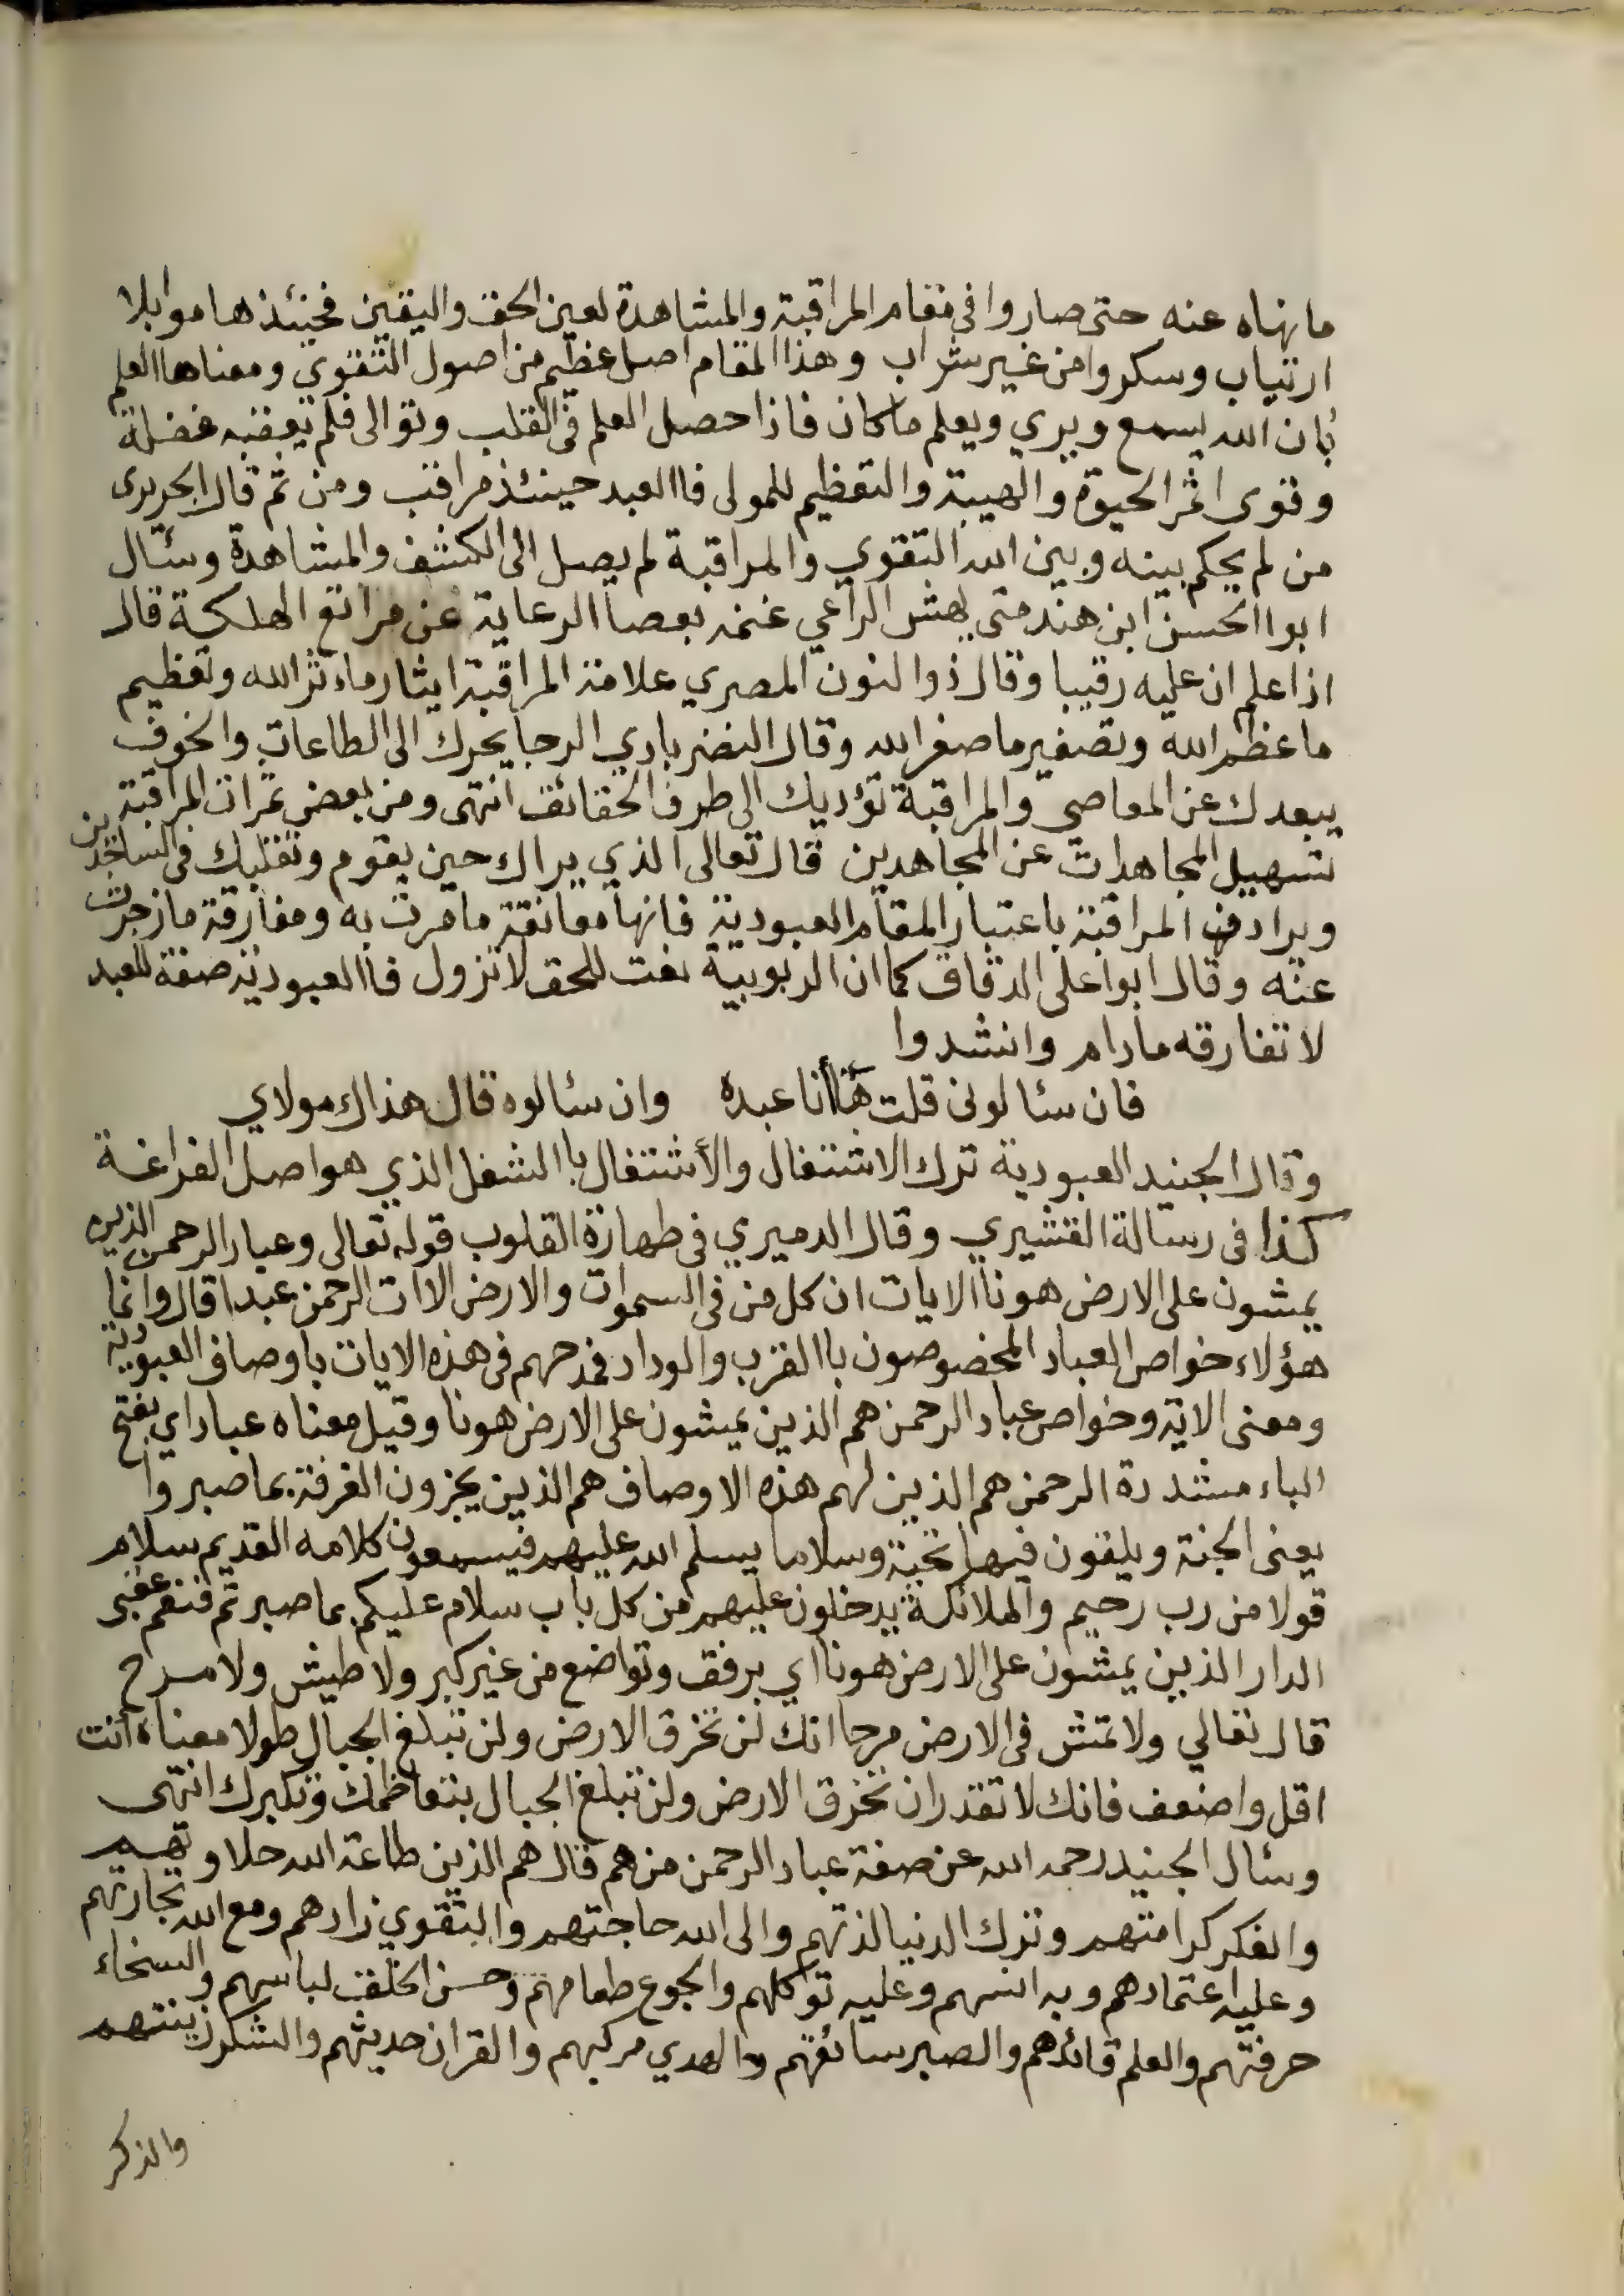 ما نهاه عنه حتى صاروا فى مقام المراقبة والمشاهدة لعين الحق واليقين فحينئذ هاموا بلا
ارتياب وسكروا من غير شراب وهذا المقام اصل عظيم من اصول التقوي ومعناها العلم
بان الله يسمع ويري ويعلم ما كان فاذا حصل العلم فى القلب وتوالى فلم يعقبه غفلة
وقوى اثمر الحيوة والهيبة والتعظيم للمولى فاالعبد حينئذ مراقب ومن ثم قال الجريرى
من لم يحكم بينه وبين الله التقوي والمراقبة لم يصل الى الكشف والمشاهدة وسئال
ابوا الحسن ابن هند متى يهش الراعي غنمه بعصا الرعاية عن مراتع الهلكة قال
اذا علم ان عليه رقيبا وقال ذوالنون المصري علامة المراقبة ايثار ماءثر الله وتعظيم
ما عظم الله وتصغير ما صغر الله وقال النضرباري الرجا يحرك الى الطاعات والخوف
يبعدك عن المعاصى والمراقبة تؤديك الى طرف الحقائق انتهى ومن بعض ثمرات المراقبة
تسهيل المجاهدات عن المجاهدين قال تعالى الذي يراك حين يقوم وتقلبك فى الساجدين
ويرادف المراقبة باعتبار المقام العبودية فانها معانقة ما مرت به ومفارقة ما زجرت
عنه وقال ابوا على الدقاق كما ان الربوبية نعت للحق لا تزول فاالعبودية صفة للعبد
لا تفارقه مادام وانشدوا
فان سئالونى قلت ها أنا عبده وان سئالوه قال هذاك مولاي
وقال الجنيد العبودية ترك الاشتغال والأشتغال باالشغل الذي هو اصل الفراغة
كذا فى رسالة القشيري وقال الدميري فى طهارة القلوب قوله تعالى وعباد الرحمن الذين
يمشون على الارض هونا الايات ان كل من فى السموات والارض الا ات الرحمن عبدا قال وانما
هؤلاء خواص العباد المخصوصون باالقرب والوداد فمدحهم فى هذه الايات باوصاف العبودية
ومعنى الاية وخواص عباد الرحمن هم الذين يمشون على الارض هونا وقيل معناه عباد اي بفتح
الباء مشددة الرحمن هم الذين لهم هذه الاوصاف هم الذين يجزون الغرفة بما صبروا
يعنى الجنة ويلقون فيها تحية وسلاما يسلم الله عليهم فيسمعون كلامه القديم سلام
قولا من رب رحيم والملائكة يدخلون عليهم من كل باب سلام عليكم بما صبرتم فنعم عقبى
الدار الذين يمشون على الارض هونا اي برفق وتواضع من غير كبر ولا طيش ولا مرح
قال تعالي ولا تمش فى الارض مرحا انك لن تخرق الارض ولن تبلغ الجبال طولا معناه أنت
اقل واضعف فانك لا تقدر ان تخرق الارض ولن تبلغ الجبال بتعاظمك وتكبرك انتهى
وسئال الجنيد رحمه الله عن صفة عباد الرحمن من هم قال هم الذين طاعة الله حلاوتهم
والفكر كرامتهم وترك الدنيا لذتهم والى الله حاجتهم والتقوي زادهم ومع الله تجارتهم
وعليه اعتمادهم وبه انسهم وعليه توكلهم والجوع طعامهم وحسن الخلق لباسهم والسخاء
حرفتهم والعلم قائدهم والصبر سائقهم والهدي مركبهم والقران حديثهم والشكر زينتهم
والذكر